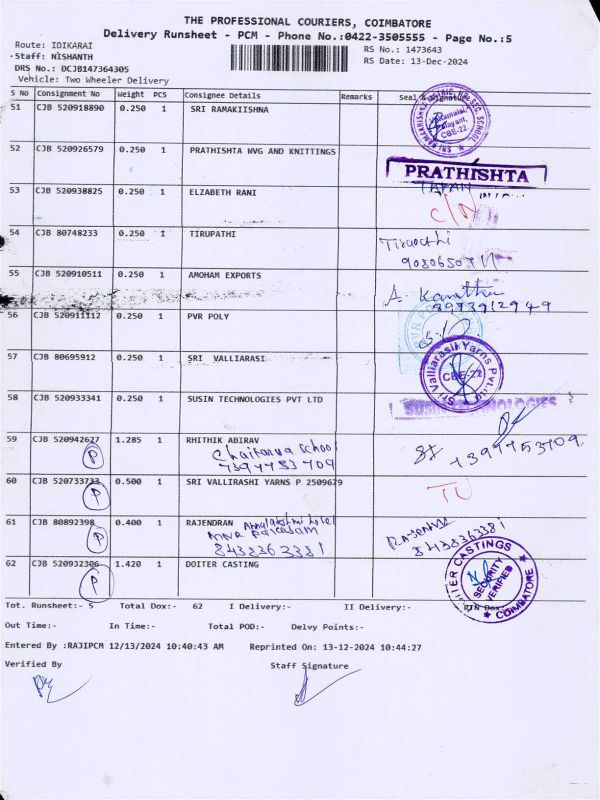 THE PROFESSIONAL COURIERS, COIMBATORE
Delivery Runsheet - PCM - Phone No.:0422-3505555 - Page No.:5
Route: IDIKARAI
RS No.: 1473643
Staff: NISHANTH
RS Date: 13-Dec-2024
DRS No.: DCJB147364305
Vehicle: Two Wheeler Delivery
S No Consignment No Weight PCS Consignee Details Remarks Seal & Signature
51 CJB 520918890 0.250 1 SRI RAMAKIISHNA
CBE-22.
52 CJB 520926579 0.250 1 PRATHISHTA WVG AND KNITTINGS
PRATHISHTA
53 CJB 520938825 0.250 1 ELZABETH RANI
C/N
54 CJB 80748233 0.250 1 TIRUPATHI
Tirupathi
55 CJB 520910511 0.250 1 AMOHAM EXPORTS
A. Kavitha
8973912949
56 CJB 520911112 0.250 1 PVR POLY
57 CJB 80695912 0.250 1 SRI VALLIARASI
Sri Valliarasi Yarns Pvt. Ltd
CBE-22
58 CJB 520933341 0.250 1 SUSIN TECHNOLOGIES PVT LTD
SUSIN TECHNOLOGIES
59 CJB 520942627 1.285 1 RHITHIK ABIRAV
P
Chaitanya School
7397753709
7397753709
60 CJB 520733733 0.500 1 SRI VALLIRASHI YARNS P 2509679
P
61 CJB 80892398 0.400 1 RAJENDRAN Annalakshmi hotel
P
8438363381
8438363381
62 CJB 520932306 1.420 1 DOITER CASTING
P
DOITER CASTINGS
SECURITY
VERIFIED
COIMBATORE
Tot. Runsheet:- 5 Total Dox:- 62 I Delivery:- II Delivery:- RTN Dox:-
Out Time:- In Time:- Total POD:- Delvy Points:-
Entered By :RAJIPCM 12/13/2024 10:40:43 AM Reprinted On: 13-12-2024 10:44:27
Verified By Staff Signature